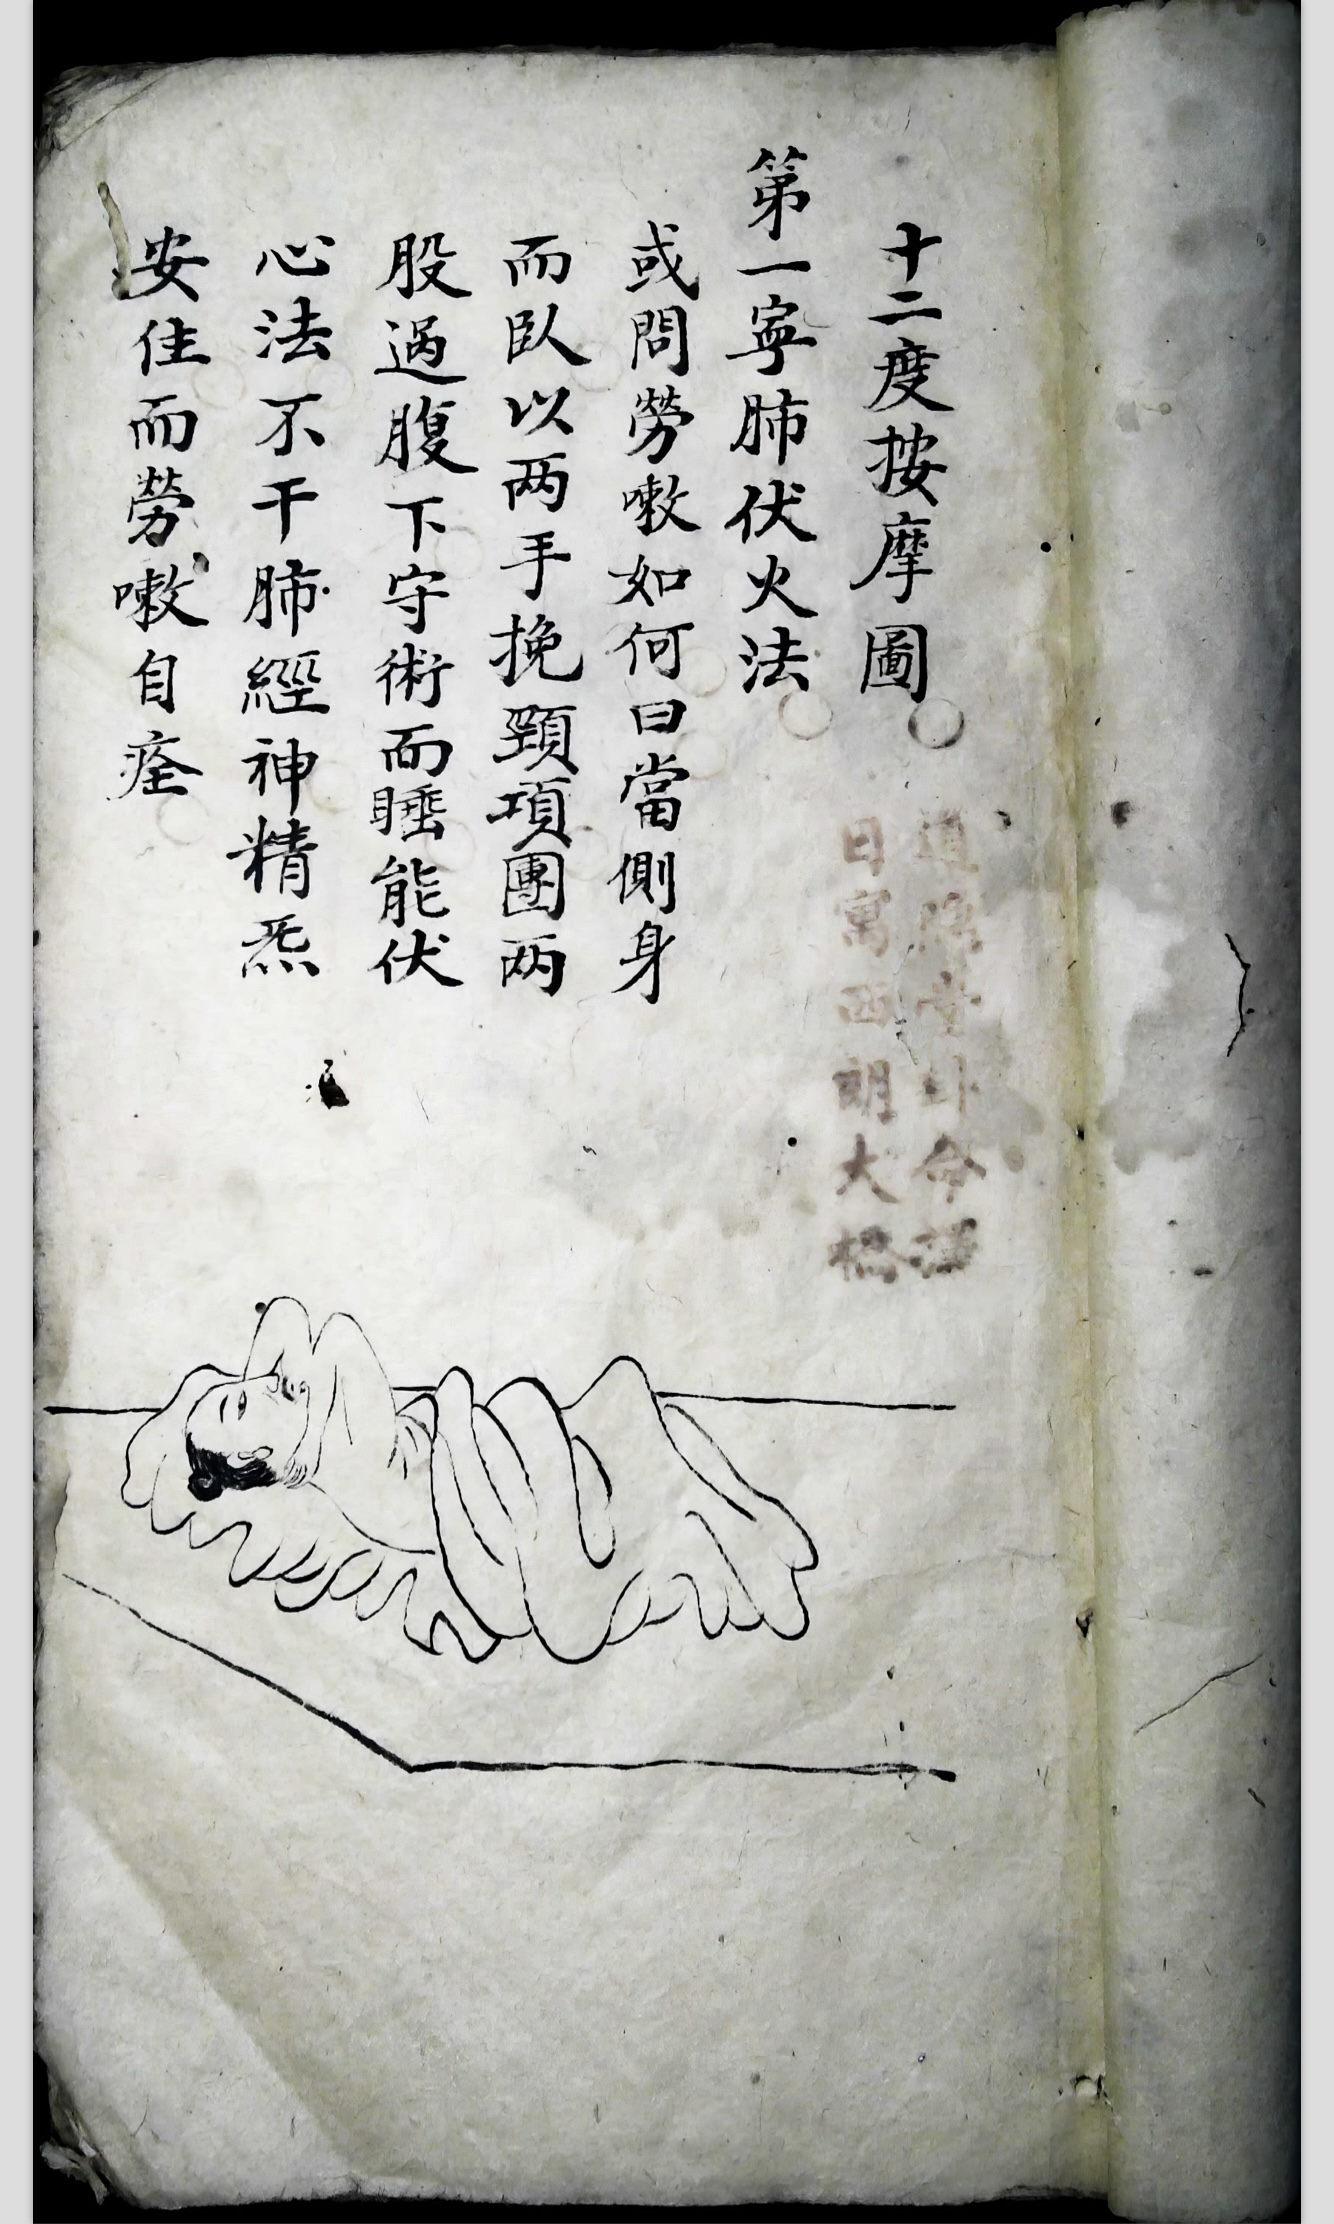 十二度按摩圖
第一寧肺伏火法
或問勞嗽如何曰當側身
而臥以两手挽頸項團两
股過腹下守術而睡能伏
心法不干肺經神精炁
安住而勞嗽自痊
堂 命
日寓西明大橋